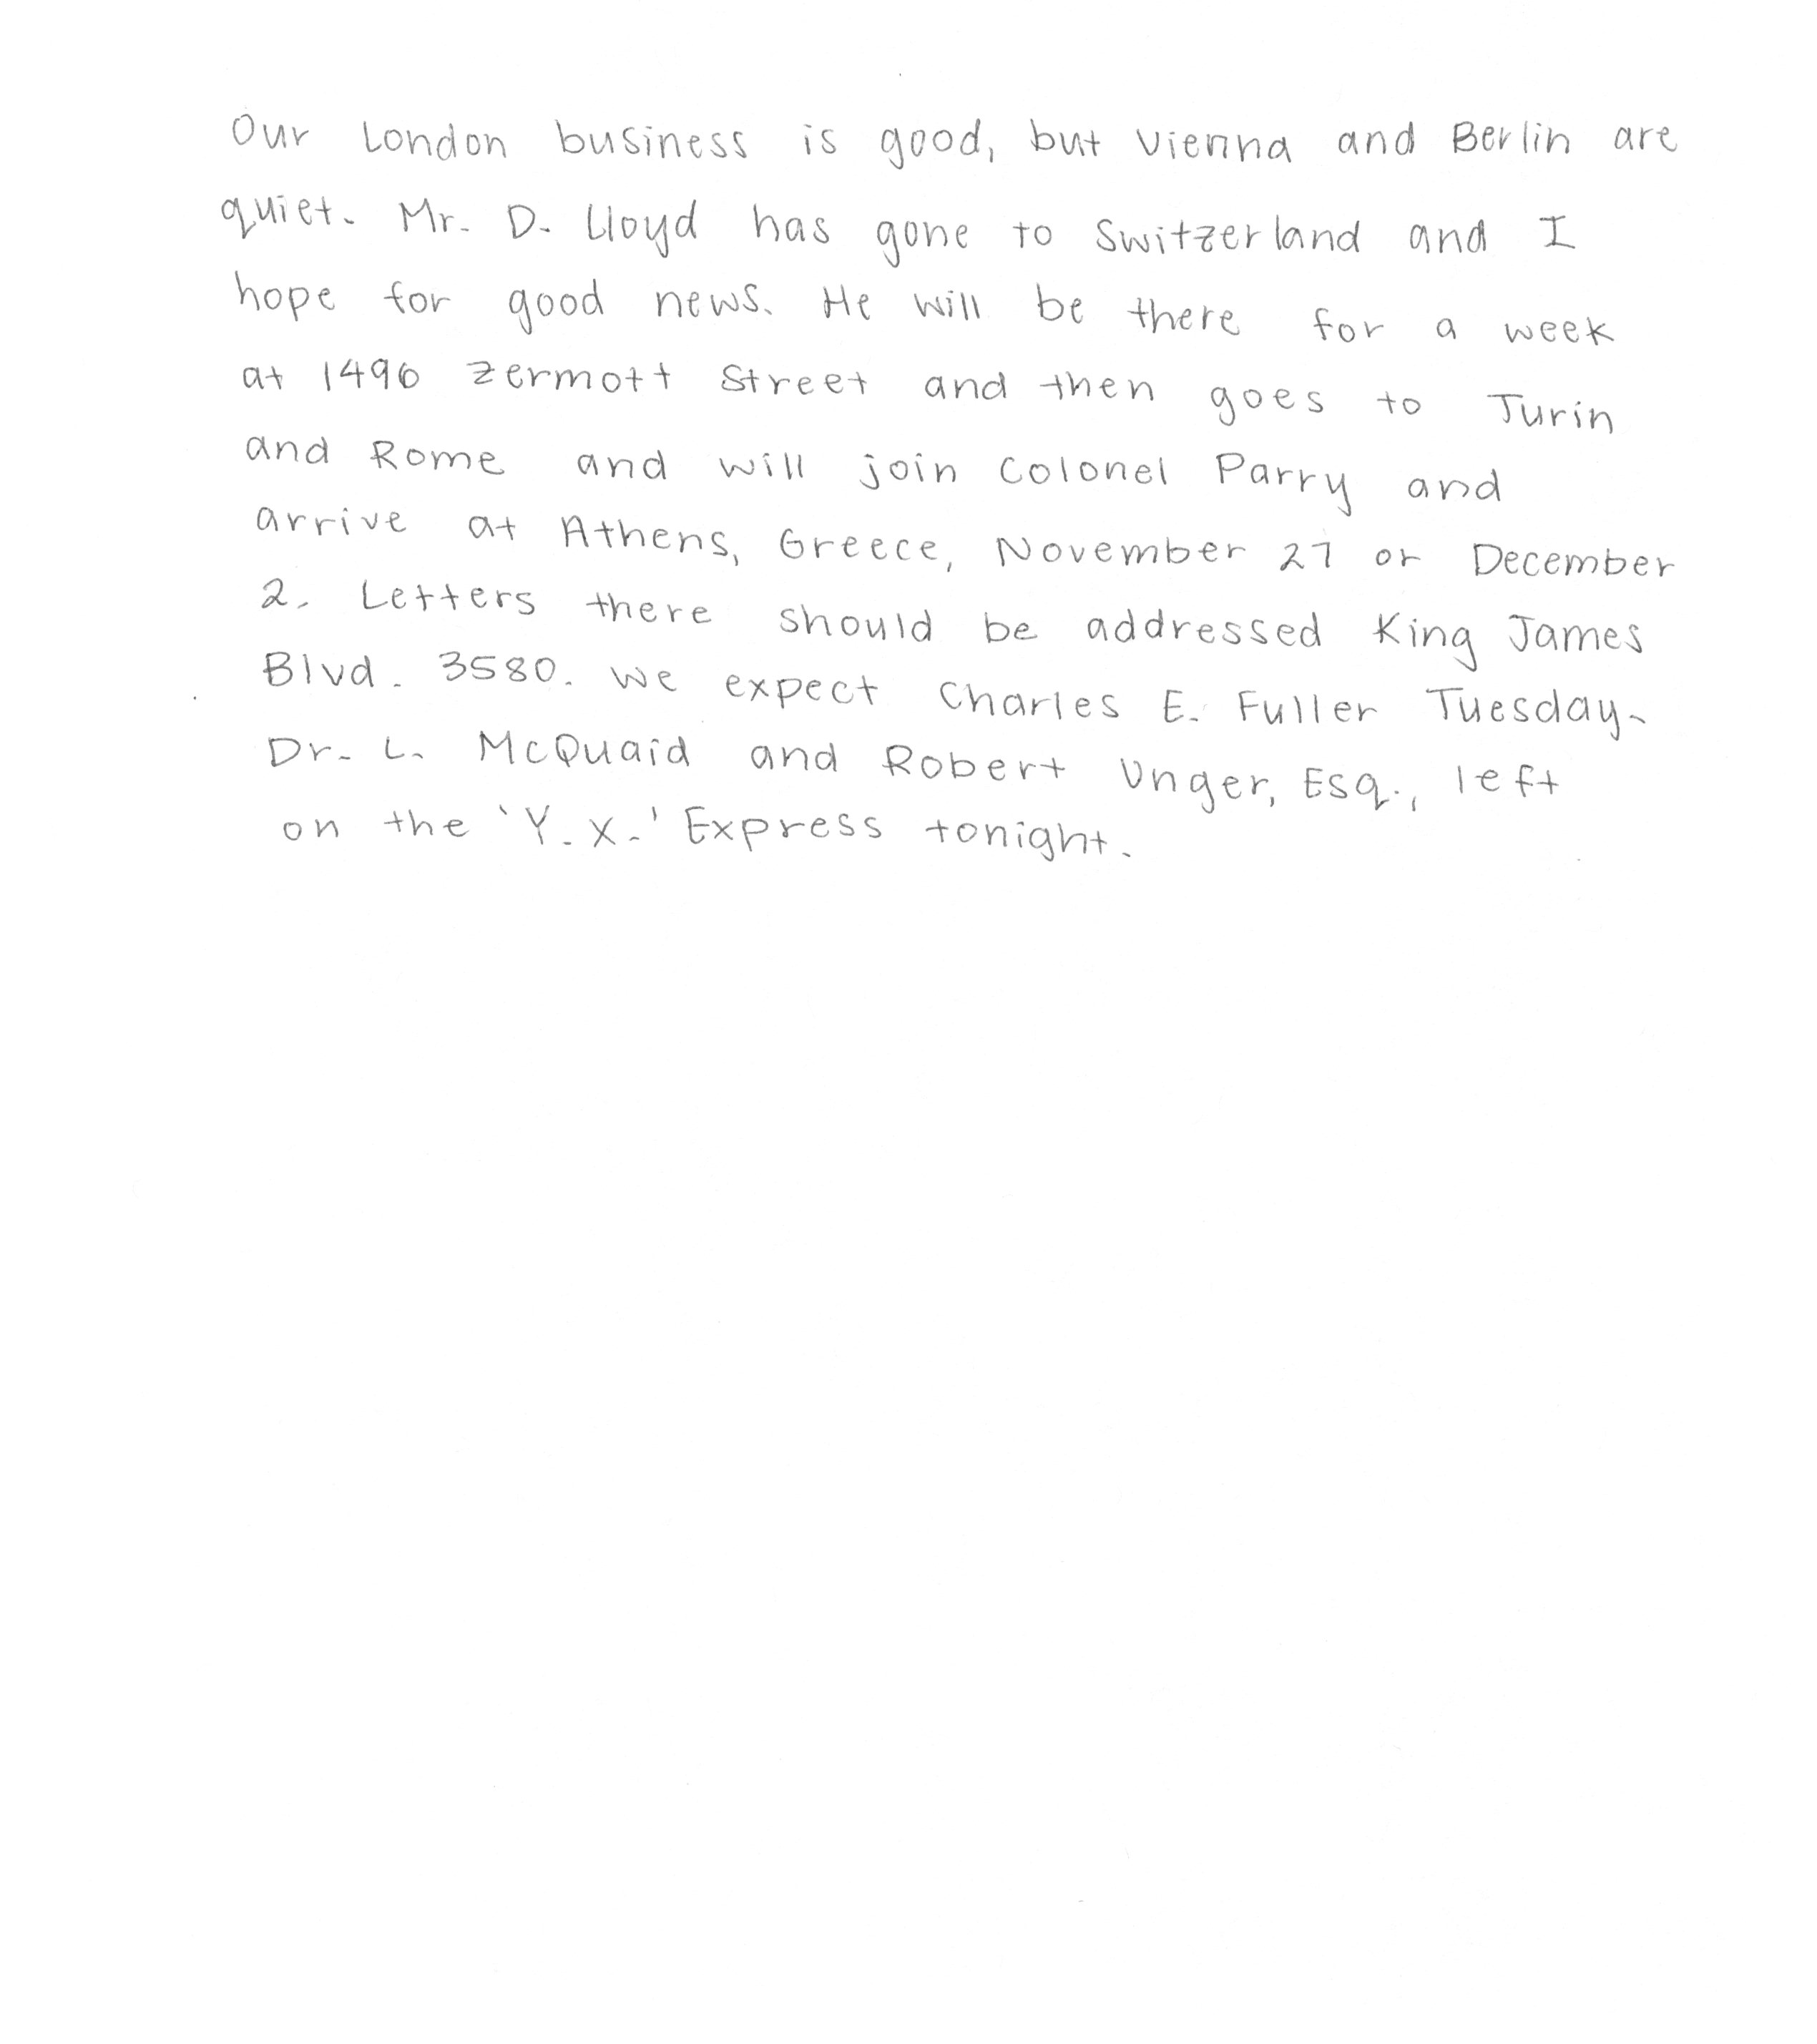 Our London business is good, but Vienna and Berlin are
quiet. Mr. D. Lloyd has gone to Switzerland and I
hope for good news. He will be there for a week
at 1496 Zermott Street and then goes to Turin
and Rome and will join Colonel Parry and
arrive at Athens, Greece, November 27 or December
2. Letters there should be addressed King James
Blvd. 3580. We expect Charles E. Fuller Tuesday.
Dr. L. McQuaid and Robert Unger, Esq., left
on the 'Y.X.' Express tonight.